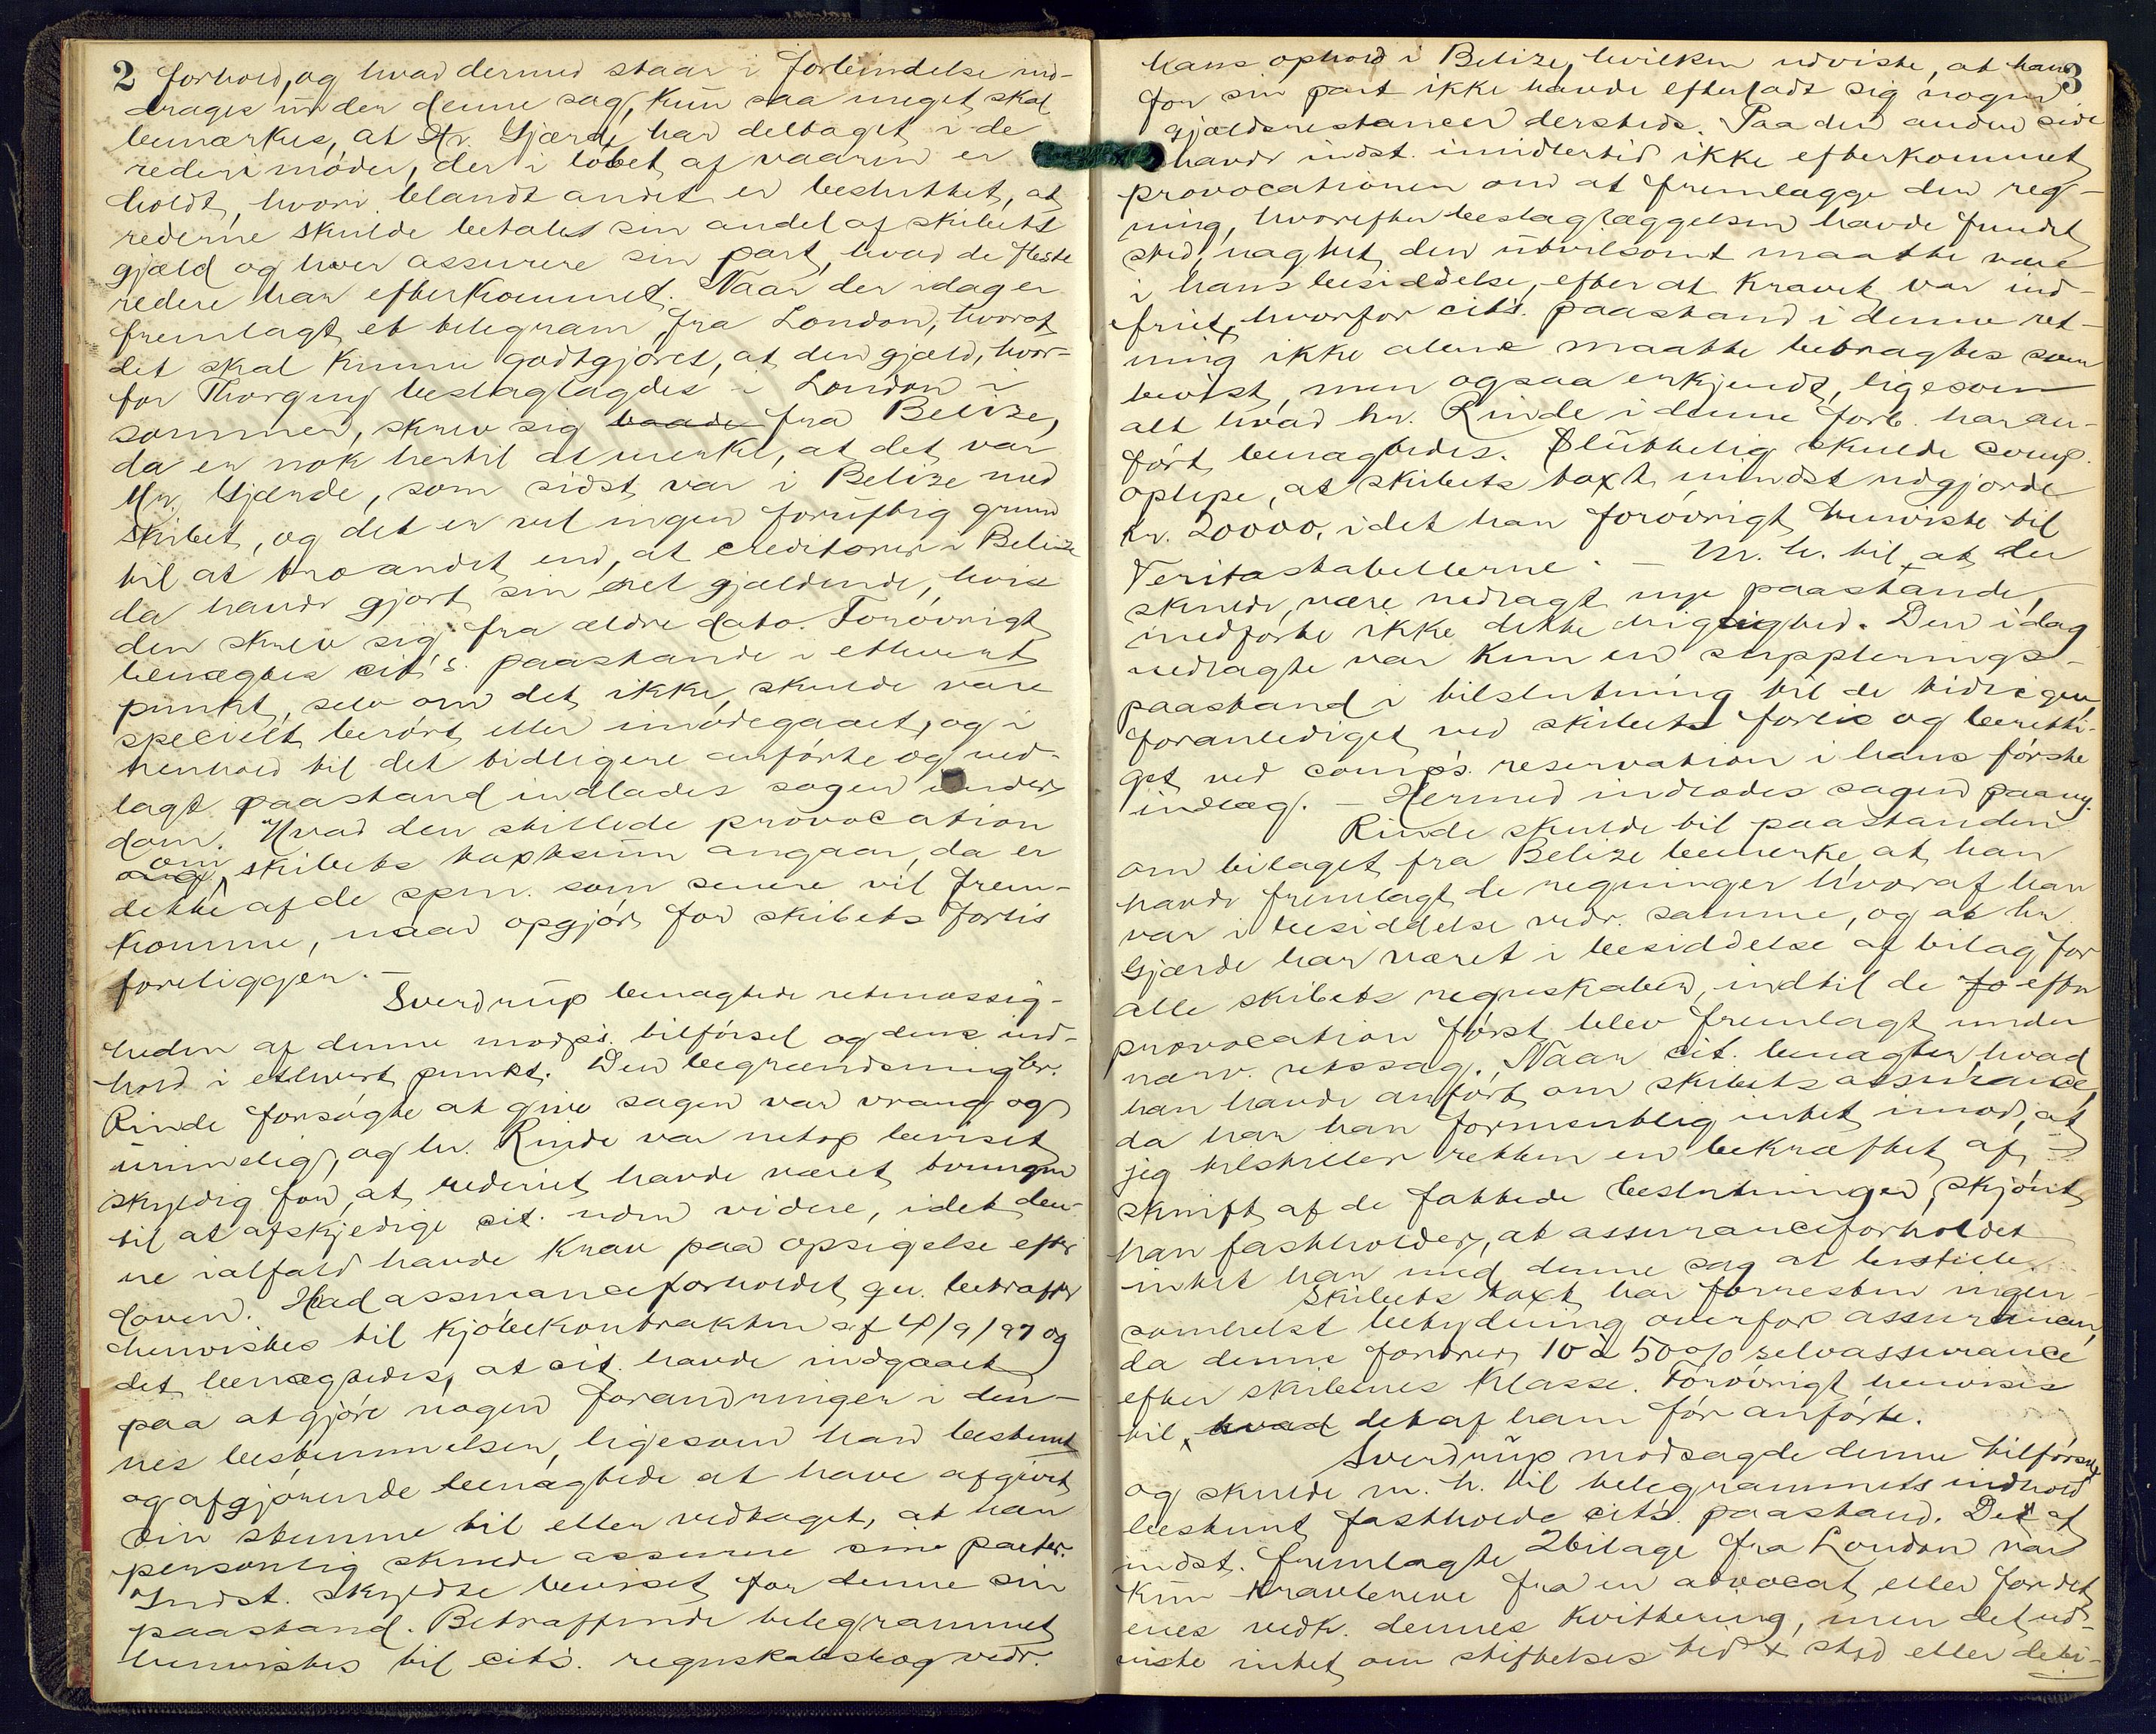 2 forhold, og hvad dermed staar i forbindelse ind-
drages under denne sag, kun saa meget skal
bemærkes, at Hr. Gjærde har deltaget i de
rederimøder, der i løbet af vaaren er
holdt, hvori blandt andet er besluttet, at
rederne skulde betale sin andel af skibets
gjæld og hver assurere sin part, hvad de fleste
redere har efterkommet. Naar der idag er
fremlagt et telegram fra London, hvorat
det skal kunne godtgjøres, at den gjæld, hvor-
for Thorgny beslaglagdes i London i
sommer, skrev sig baade fra Belize,
da er nok hertil at merke, at det var
Hr. Gjærde, som sidst var i Belize med
skibet, og det er vel ingen fornuftig grund
til at tro andet end, at creditorer i Belize
da havde gjort sin ret gjældende, hvis
den skrev sig fra ældre dato. Forøvrigt
benægtes cit's. paastande i ethvert
punkt, selv om det ikke skulde være
specielt berørt eller imødegaaet, og i
henhold til det tidligere anførte og ned-
lagt paastand indlades sagen under
dom. Hvad den stillede provocation
om skibets taxtsum angaar, da er
dette af de spm. som senere vil frem-
komme, naar opgjør for skibets forlis
foreligger. —
Sverdrup benægtede retmæssig-
heden af denne modp's. tilførsel og dens ind-
hold i ethvert punkt. Den begrændsning hr.
Rinde forsøgte at give sagen var vrang og
urimelig, og hr. Rinde var netop beviset
skyldig for, at rederiet havde været tvungen
til at afskjedige cit. uden videre, idet den-
ne ialfald havde krav paa opsigelse efter
loven. Hvad assuranceforholdet gr. betræffer
henvistes til kjøbekontrakten af 4/9/97 og
det benægtedes, at cit. havde indgaaet
paa at gjøre nogen forandringer i den-
nes bestemmelser, ligesom han bestemt
og afgjørende benægtede at have afgivet
sin stemme til eller vedtaget, at han
personlig skulde assurere sine parter.
Indst. skyldte beviset for denne sin
paastand. Betræffende telegrammet
henvistes til cit's. regnskabsbog vedr.
3
hans ophold i Belize, hvilken udviste, at han
for sin part ikke havde efterladt sig nogen
gjældsrestancer dersteds. Paa den anden side
havde indst. imidlertid ikke efterkommet
provocationen om at fremlægge den reg-
ning, hvorefter beslaglæggelsen havde fundet
sted, uagtet den utvilsomt maatte være
i hans besiddelse, efter at kravet var ind-
friet, hvorfor cits. paastand i denne ret-
ning ikke alene maatte betragtes som
bevist, men ogsaa erkjendt, ligesom
alt hvad hr. Rinde i denne forb. har an-
ført benægtedes. Sluttelig skulde comp.
oplyse, at skibets taxt mindst udgjorde
kr. 20000, idet han forøvrigt henviste til
Veritastabellerne. — M. h. til at der
skulde være nedlagt nye paastande,
medførte ikke dette rigtighed. Den idag
nedlagte var kun en supplerings-
paastand i tilslutning til de tidligere
foranlediget ved skibets forlis og beretti-
get ved comp's. reservation i hans første
indlæg. — Hermed indlodes sagen paany.
Rinde skulde til paastanden
om bilaget fra Belize bemerke, at han
havde fremlagt de regninger hvoraf han
var i besiddelse vedr. samme, og at hr.
Gjærde har været i besiddelse af bilag for
alle skibets regnskaber, indtil de fo efter
provocation først blev fremlagt under
nærv. retssag. Naar cit. benægter, hvad
han havde anført om skibets assurance,
da har han formentlig intet imod, at
jeg tilstiller retten en bekræftet af-
skrift af de fattede beslutninger, skjønt
han fastholder, at assuranceforholdet
intet har med denne sag at bestille.
Skibets taxt har forresten ingen-
somhelst betydning overfor assurancen,
da denne fordrer 10 à 50 % selvassurance
efter skibenes klasse. Forøvrigt henvises
til hvad det af ham før anførte.
Sverdrup modsagde denne tilførsel
og skulde m. h. til telegrammets indhold
bestemt fastholde cit's. paastand. De af
indst. fremlagte 2 bilage fra London var
kun kravbreve fra en advocat eller for det
enes vedk. dennes kvittering, men det ud-
viste intet om stiftelses tid & sted eller debi-